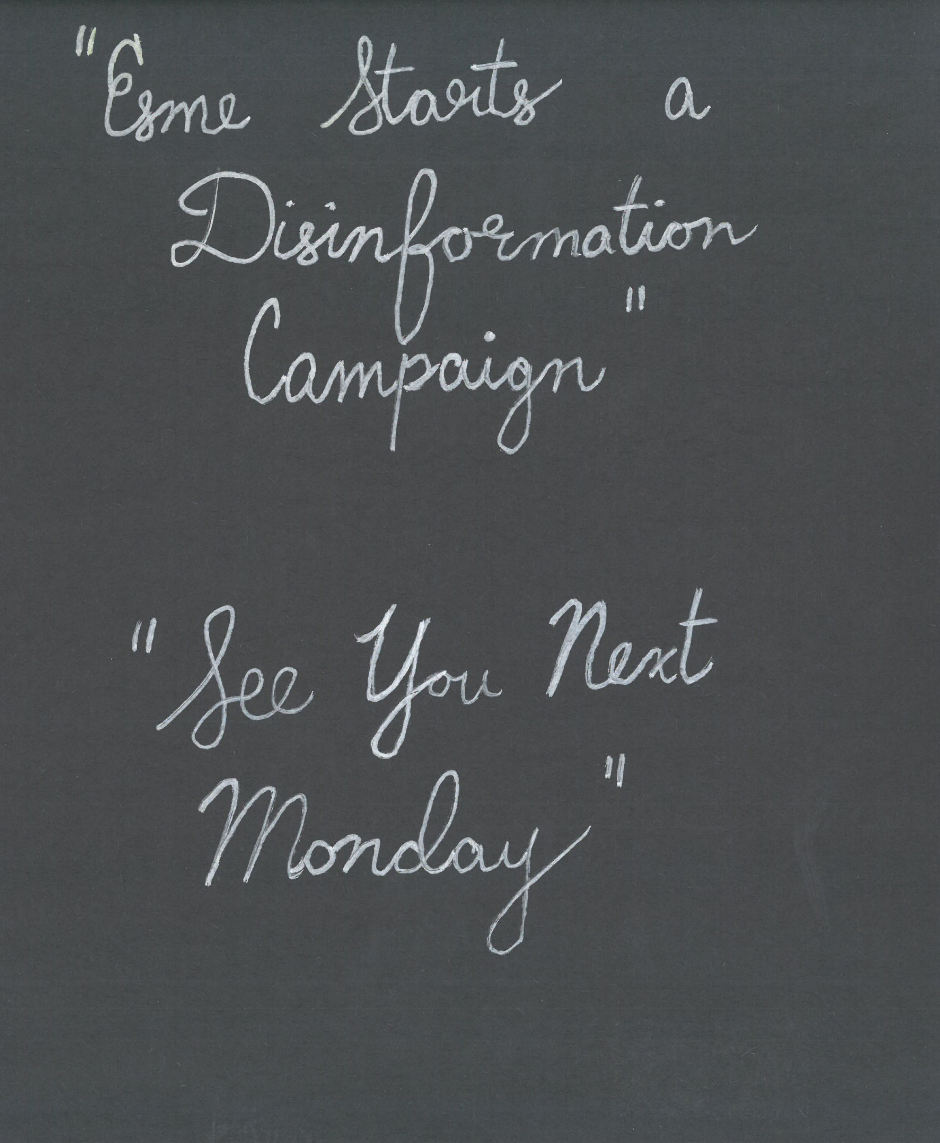 "Esme Starts a
Disinformation
Campaign"
"See You Next
Monday"